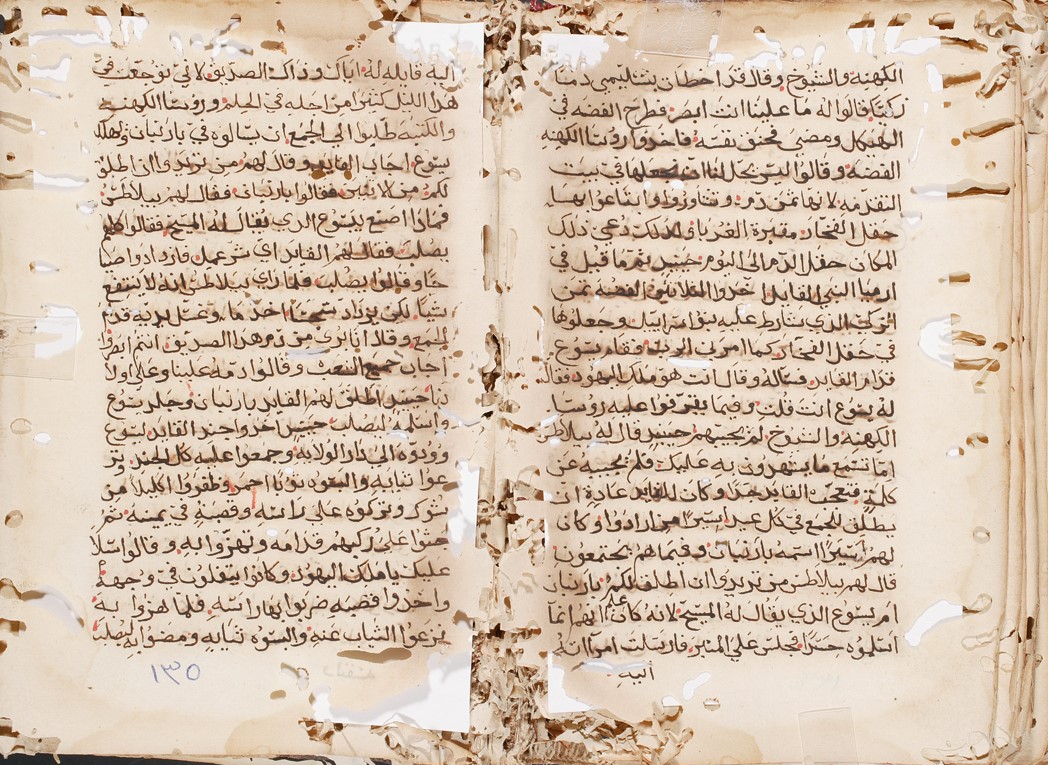 الكهنه والشيوخ وقال قد اخطات بتسليمي دما
زكيا قالوا له ما علينا انت ابصر فطرح الفضه في
الهيكل ومضي فخنق نفسه فاخذوا روسا الكهنه
الفضه وقالوا ليس يحل لنا ان نجعلها في بيت
التقدمه لانها ثمن دم وتشاوروا وابتاعوا بها
حقل الفخار مقبرة الغربا ولدلك دعي دلك
المكان حقل الدم الي اليوم حينيد تم ما قيل في
ارميا النبي القايل اخدوا الثلاثين الفضه ثمن
الزكي الدي شارط عليه بنوا اسراييل وجعلوها
في حقل الفخار كما امرني الرب فقام يسوع
قدام القايد فساله وقال انت هو ملك اليهود فقال
له يسوع انت قلت وفيما يقرفوا عليه روسا
الكهنه والشيوخ لم يجيبهم حينيد قال له بيلاطس
اما تسمع ما يشهدون به عليك فلم يجيبه عن
كلمة فتعجب القايد جدا وكان للقايد عادة ان
يطلق للجمع في كل عيد اسيرا من ارادوا وكان
لهم اسيرا اسمه بارنبان وفيما هم مجتمعون
قال لهم بيلاطس من تريدوا ان اطلق لكم بارنبان
ام يسوع الدي يقال له المسيح لانه كان علم انهم انما
اسلموه حسدا فجلس علي المنبر فارسلت امراته
اليه
اليه قايله له اياك ودلك الصديق لاني توجعت في
هدا الليل كثيرا من اجله في الحلم وروسا الكهنه
والكتبه طلبوا الي الجمع ان يسالوه في بارنبان ويهلك
يسوع اجاب القايد وقال لهم من تريدوا ان اطلق
لكم من الاثنين فقالوا بارنبان فقال لهم بيلاطس
فمادا اصنع بيسوع الدي يقال له المسيح فقالوا كلهم
يصلب فقال لهم القايد اي شر عمل فازدادوا صيا
حا وقالوا يصلب فلما راي بيلاطس انه لا ينتفع
شيا لكن يزداد سجسا اخد ما وغسل يديه قدام
الجمع وقال اني بري من دم هدا الصديق انتم ابصروا
اجاب جميع الشعب وقالوا دمه علينا وعلي اولا
دنا حينيد اطلق لهم القايد بارنبان وجلد يسوع
واسلمه ليصلب حينيد اخدوا جند القايد ليسوع
وودوه الي دار الولايه وجمعوا عليه كل الجند ونز
عوا ثيابه والبسوه ثوبا احمر وظفروا اكليلا من
شوك وتركوه علي راسه وقصبه في يمينه ثم
جثوا علي ركبهم قدامه وتهزوا به وقالوا سلا
عليك يا ملك اليهود وكانوا يتفلون في وجهه
واخدوا قصبه ضربوا بها راسه فلما هزوا به
نزعوا الثياب عنه والبسوه ثيابه ومضوا به ليصلب
١٣٥